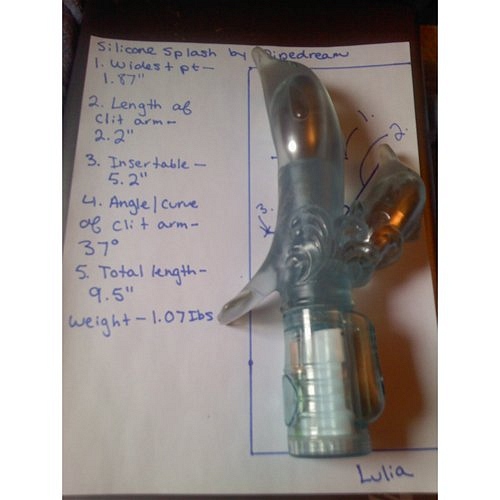 Silicone Splash by Pipedream
1. Widest pt-
1.87"
2. Length of
clit arm-
2.2"
3. Insertable-
5.2"
4. Angle/curve
of clit arm-
37°
5. Total length-
9.5"
Weight-1.07lbs
1.
2.
3.
Lulia